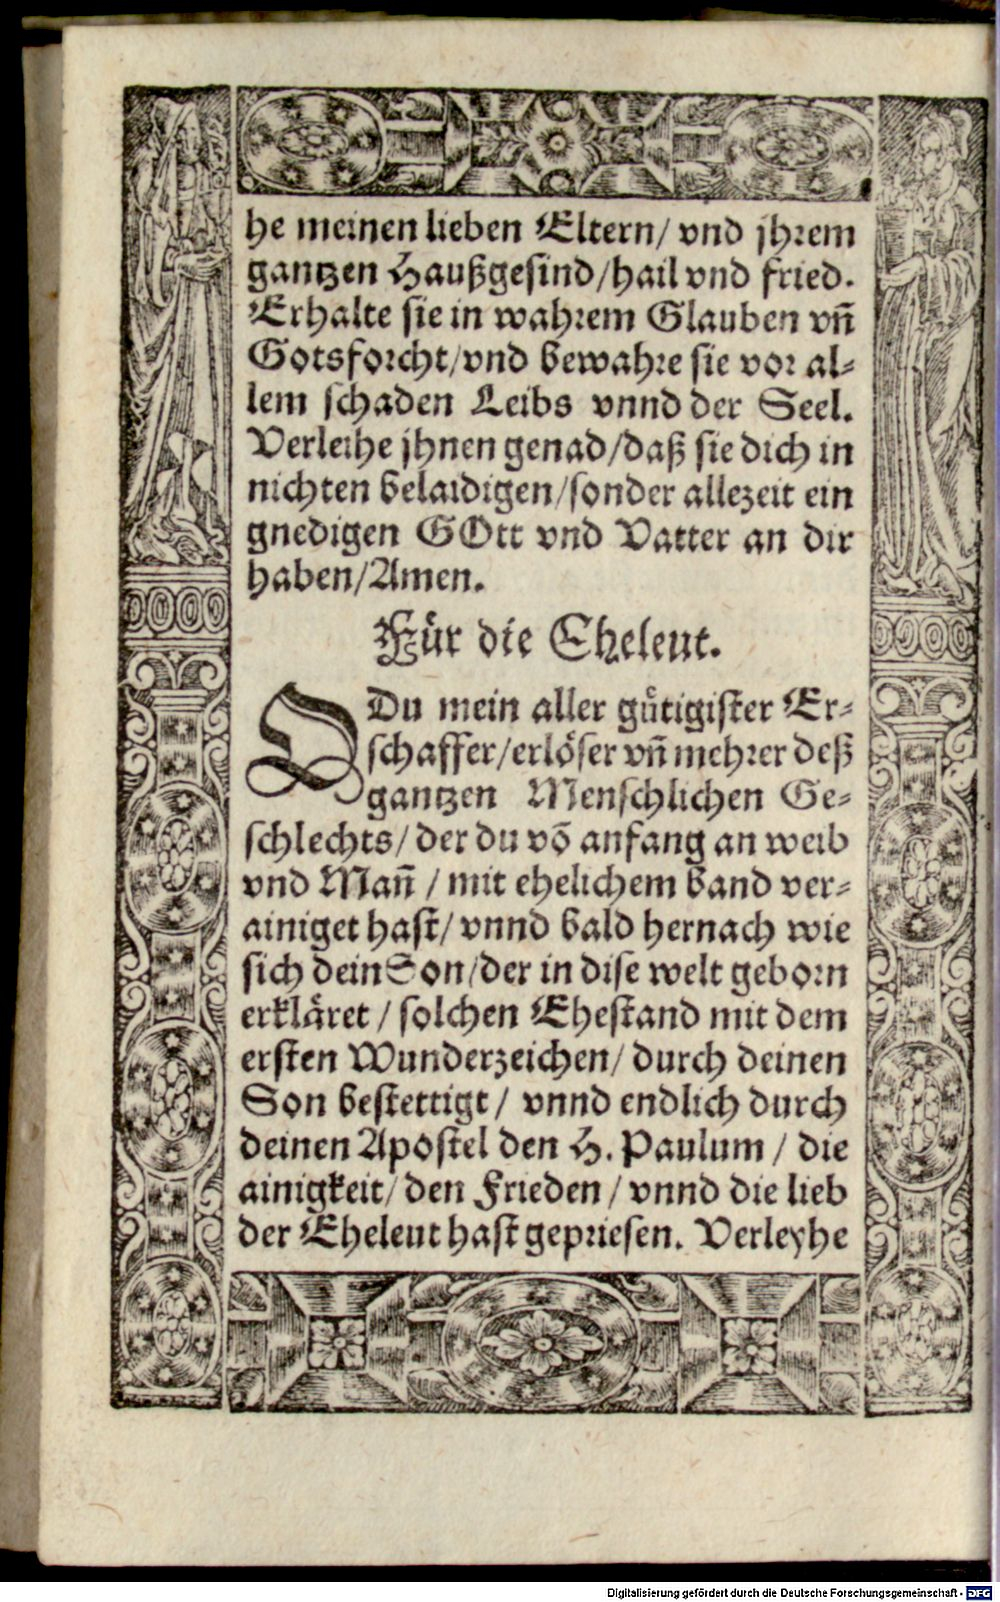 he meinen lieben Eltern/ vnd jhrem
gantzen Haußgesind/hail vnd fried.
Erhalte sie in wahrem Glauben vñ
Gotsforcht/vnd bewahre sie vor al⸗
lem schaden Leibs vnnd der Seel.
Verleihe jhnen genad/daß sie dich in
nichten belaidigen/sonder allezeit ein
gnedigen GOtt vnd Vatter an dir
haben/Amen.
Für die Eheleut.
O Du mein aller gůtigister Er⸗
schaffer/erlöser vñ mehrer deß
gantzen Menschlichen Ge⸗
schlechts/ der du võ anfang an weib
vnd Mañ / mit ehelichem band ver⸗
ainiget hast/ vnnd bald hernach wie
sich dein Son/der in dise welt geborn
erkläret / solchen Ehestand mit dem
ersten Wunderzeichen/ durch deinen
Son bestettigt/ vnnd endlich durch
deinen Apostel den H. Paulum / die
ainigkeit/ den Frieden/ vnnd die lieb
der Eheleut hast gepriesen. Verleyhe
Digitalisierung gefördert durch die Deutsche Forschungsgemeinschaft - DFG